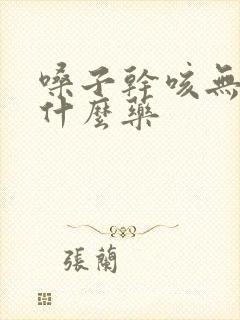 嗓子幹咳無
什麼藥
張蘭